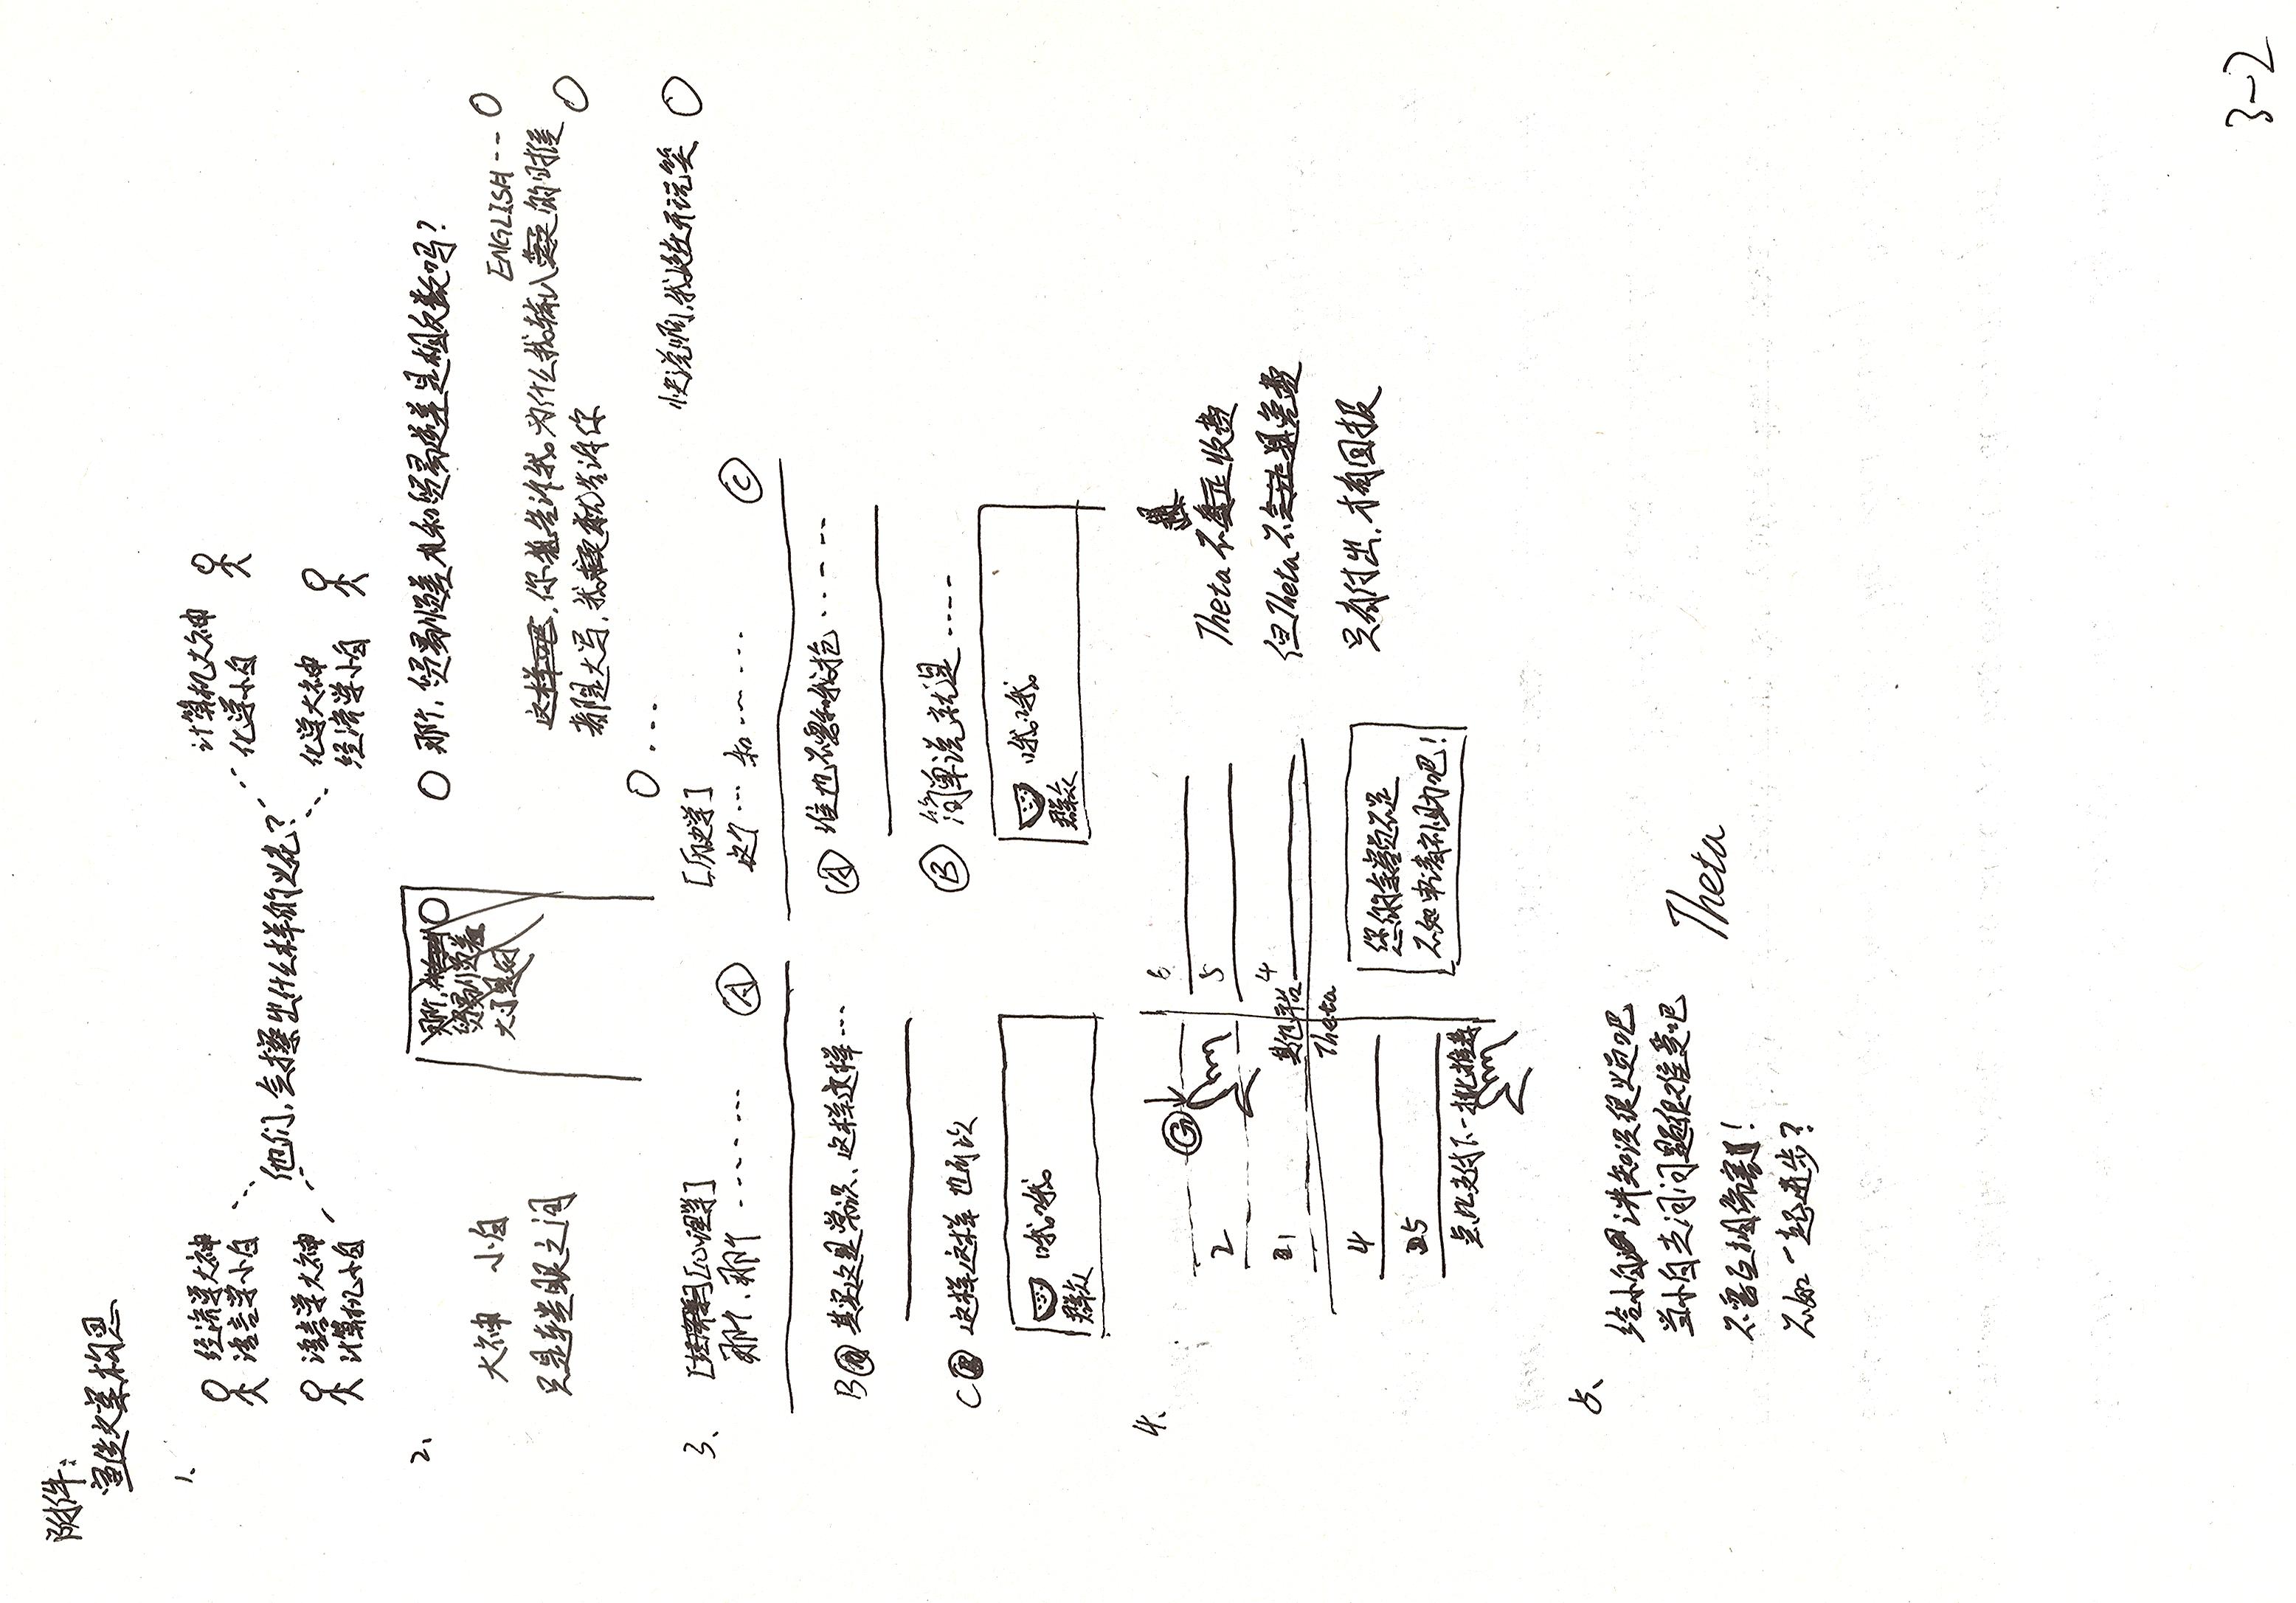 附件：
宣传文案构思
1、
经济学大神
语言学小白
语言学大神
计算机小白
他们，会擦出什么样的火花？
计算机大神
化学小白
化学大神
经济学小白
2、
大神 小白
只是转眼之间
那个，
贸易顺差
那个，贸易顺差和贸易逆差是相反数吗？
ENGLISH--
你告诉我为什么我输入的时候
都是大写，我就告诉你
...
快说啊，我是在开玩笑
3、
[心理学]
那个、那个 ........
A
B 其实这是常识、这样这样...
C 这样这样 也可以
哦哦。
群众
[历史学]
这个... 和......
C
A 谁也不要和我抢 .....
B 简单说就是 ....
哦哦。
群众
4、
G
2
1
6
5
4
其他平台
Theta
4
5
点此支付下一批推荐
您的余额不足
不如申请补助吧！
Theta 不是收费
但Theta 不是免费
只有付出，才有回报
5、
给小白讲知识很烦吧
当小白去问问题很难受吧
不要互相伤害！
不如一起进步？
Theta
3-2